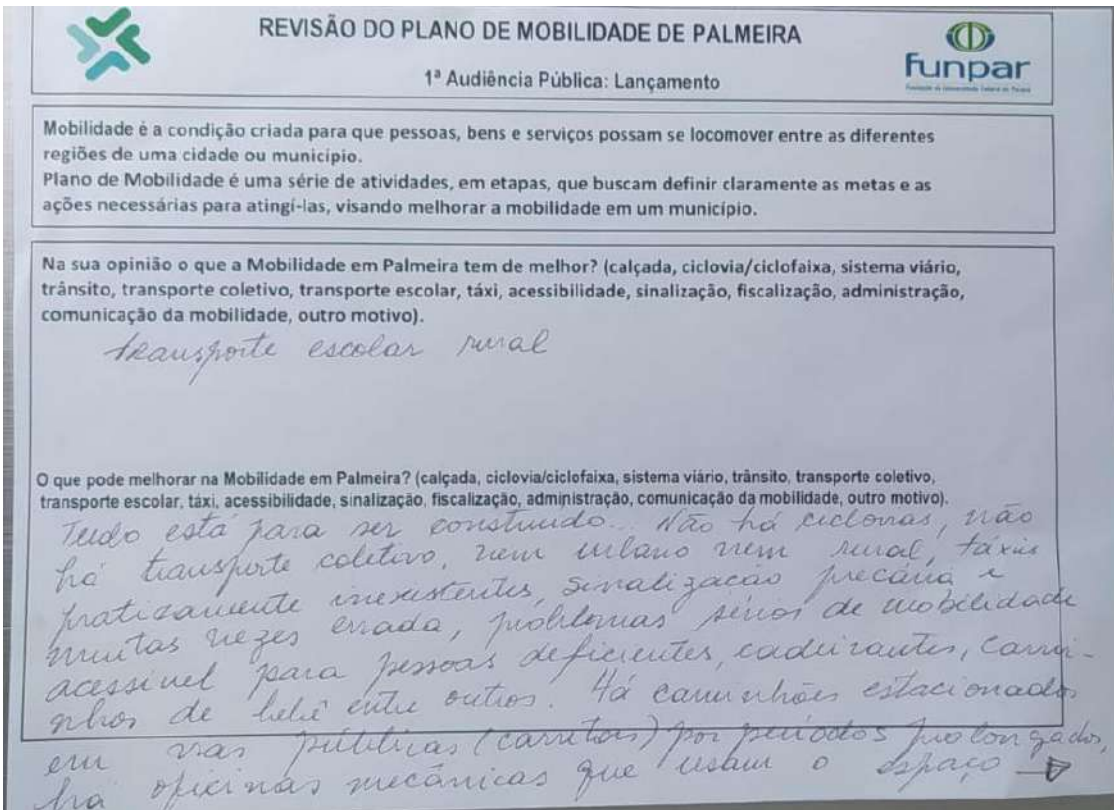 REVISÃO DO PLANO DE MOBILIDADE DE PALMEIRA
1ª Audiência Pública: Lançamento
funpar
Fundação da Universidade Federal do Paraná
Mobilidade é a condição criada para que pessoas, bens e serviços possam se locomover entre as diferentes
regiões de uma cidade ou município.
Plano de Mobilidade é uma série de atividades, em etapas, que buscam definir claramente as metas e as
ações necessárias para atingí-las, visando melhorar a mobilidade em um município.
Na sua opinião o que a Mobilidade em Palmeira tem de melhor? (calçada, ciclovia/ciclofaixa, sistema viário,
trânsito, transporte coletivo, transporte escolar, táxi, acessibilidade, sinalização, fiscalização, administração,
comunicação da mobilidade, outro motivo).
transporte escolar rural
O que pode melhorar na Mobilidade em Palmeira? (calçada, ciclovia/ciclofaixa, sistema viário, trânsito, transporte coletivo,
transporte escolar, táxi, acessibilidade, sinalização, fiscalização, administração, comunicação da mobilidade, outro motivo).
Tudo está para ser construído... Não há ciclovias, não
há transporte coletivo, nem urbano nem rural, táxis
praticamente inexistentes, sinalização precária e
muitas vezes errada, problemas sérios de mobilidade
acessível para pessoas deficientes, cadeirantes, carri-
nhos de bebê entre outros. Há caminhões estacionados
em vias públicas (carretas) por períodos prolongados,
há oficinas mecânicas que usam o espaço